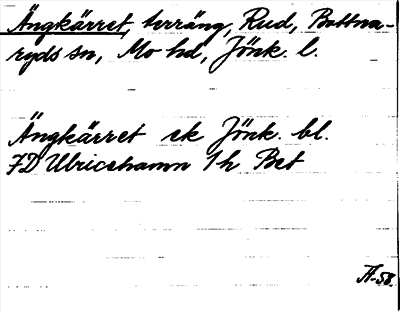 Ängkärret, terräng, Rud, Bottna-
ryds sn, Mo hd, Jönk. l.
Ängkärret ek Jönk. bl.
7D Ulricehamn 1h Bet
Ä-58.